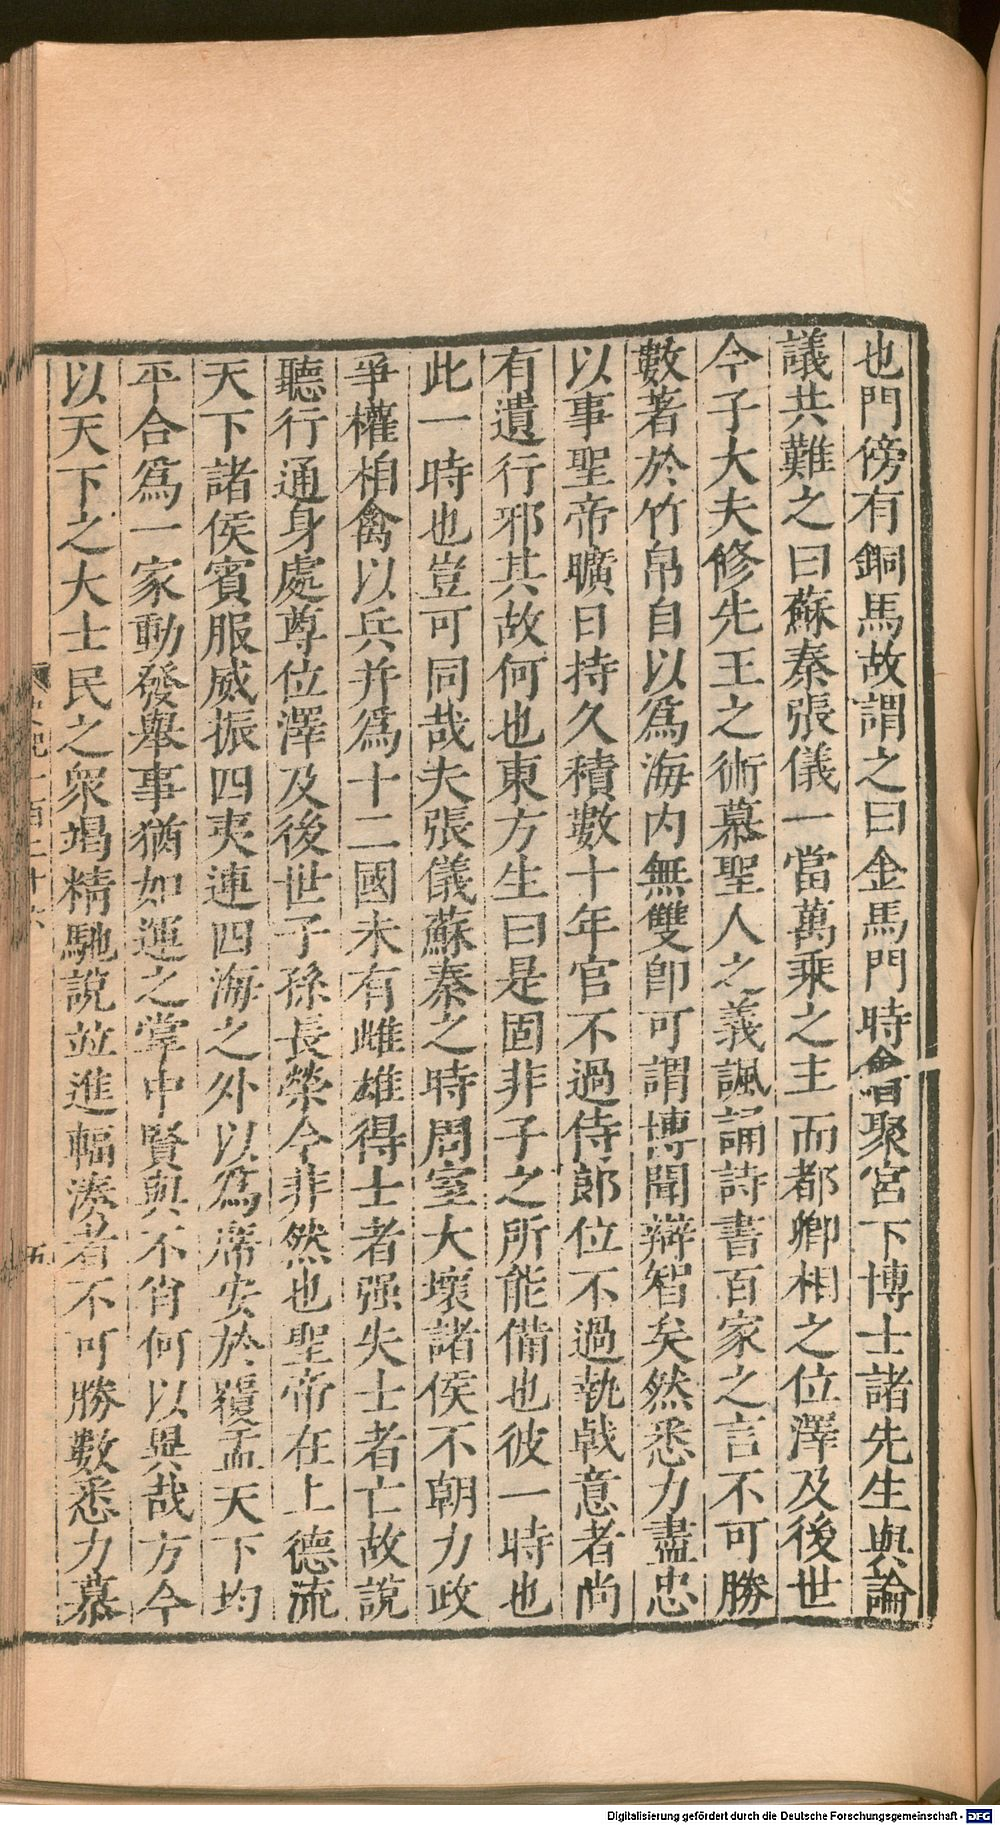 也門傍有銅馬故謂之曰金馬門時會聚宮下博士諸先生與論
議共難之曰蘇秦張儀一當萬乘之主而都卿相之位澤及後世
今子大夫修先王之術慕聖人之義諷誦詩書百家之言不可勝
數著於竹帛自以爲海内無雙卽可謂博聞辯智矣然悉力盡忠
以事聖帝曠日持久積數十年官不過侍郎位不過執戟意者尚
有遺行邪其故何也東方生曰是固非子之所能備也彼一時也
此一時也豈可同哉夫張儀蘇秦之時周室大壞諸侯不朝力政
爭權相禽以兵并爲十二國未有雌雄得士者强失士者亡故說
聽行通身處尊位澤及後世子孫長榮今非然也聖帝在上德流
天下諸侯賓服威振四夷連四海之外以爲席安於覆盂天下均
平合爲一家動發舉事猶如運之掌中賢與不肖何以異哉方今
以天下之大士民之衆竭精馳說並進輻湊者不可勝數悉力慕
五
Digitalisierung gefördert durch die Deutsche Forschungsgemeinschaft - DFG